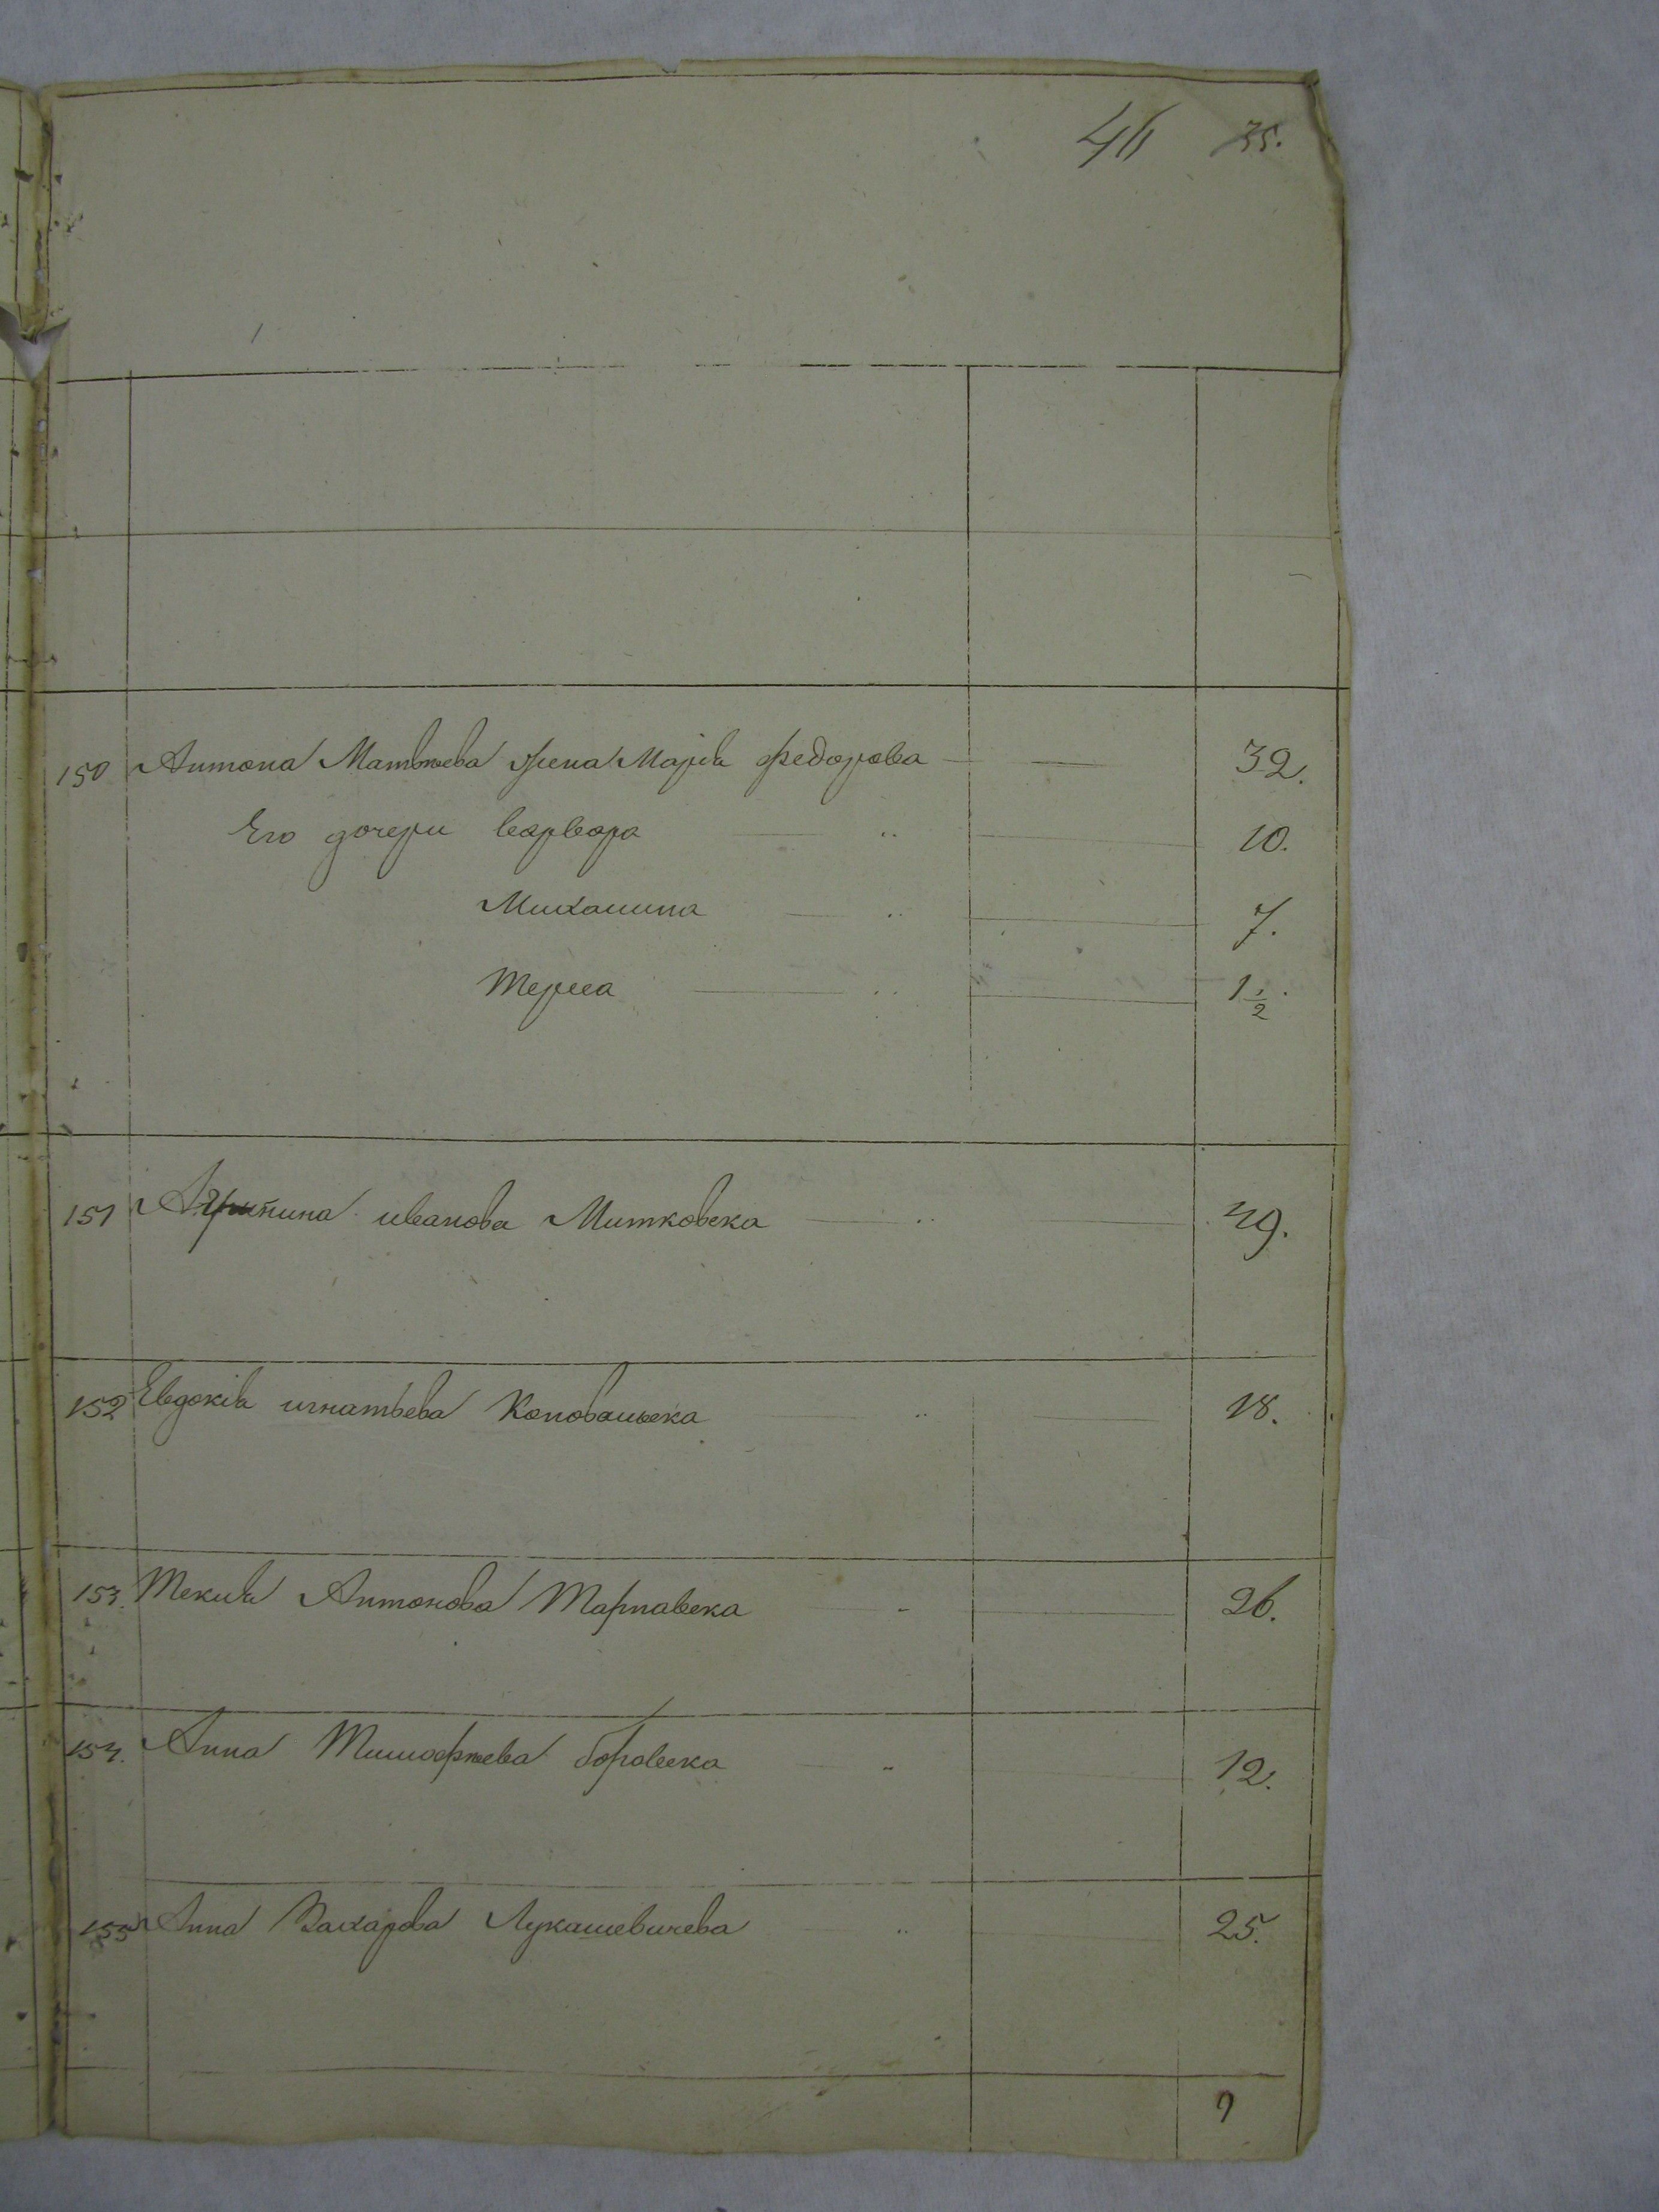 46 35.
150 Антона Матвѣева жена Марiя Федорова 32.
Его дочери варвара 10.
Михалина 7.
Тереса 1 1/2.
151 Агрипина иванова Митковска 49.
152 Евдокiя игнатьева Коновальска 18.
153. Текля Антонова Тарнавска 26.
154. Анна Тимофѣева боровска 12.
155 Анна Захарова Лукашевичева 25.
9